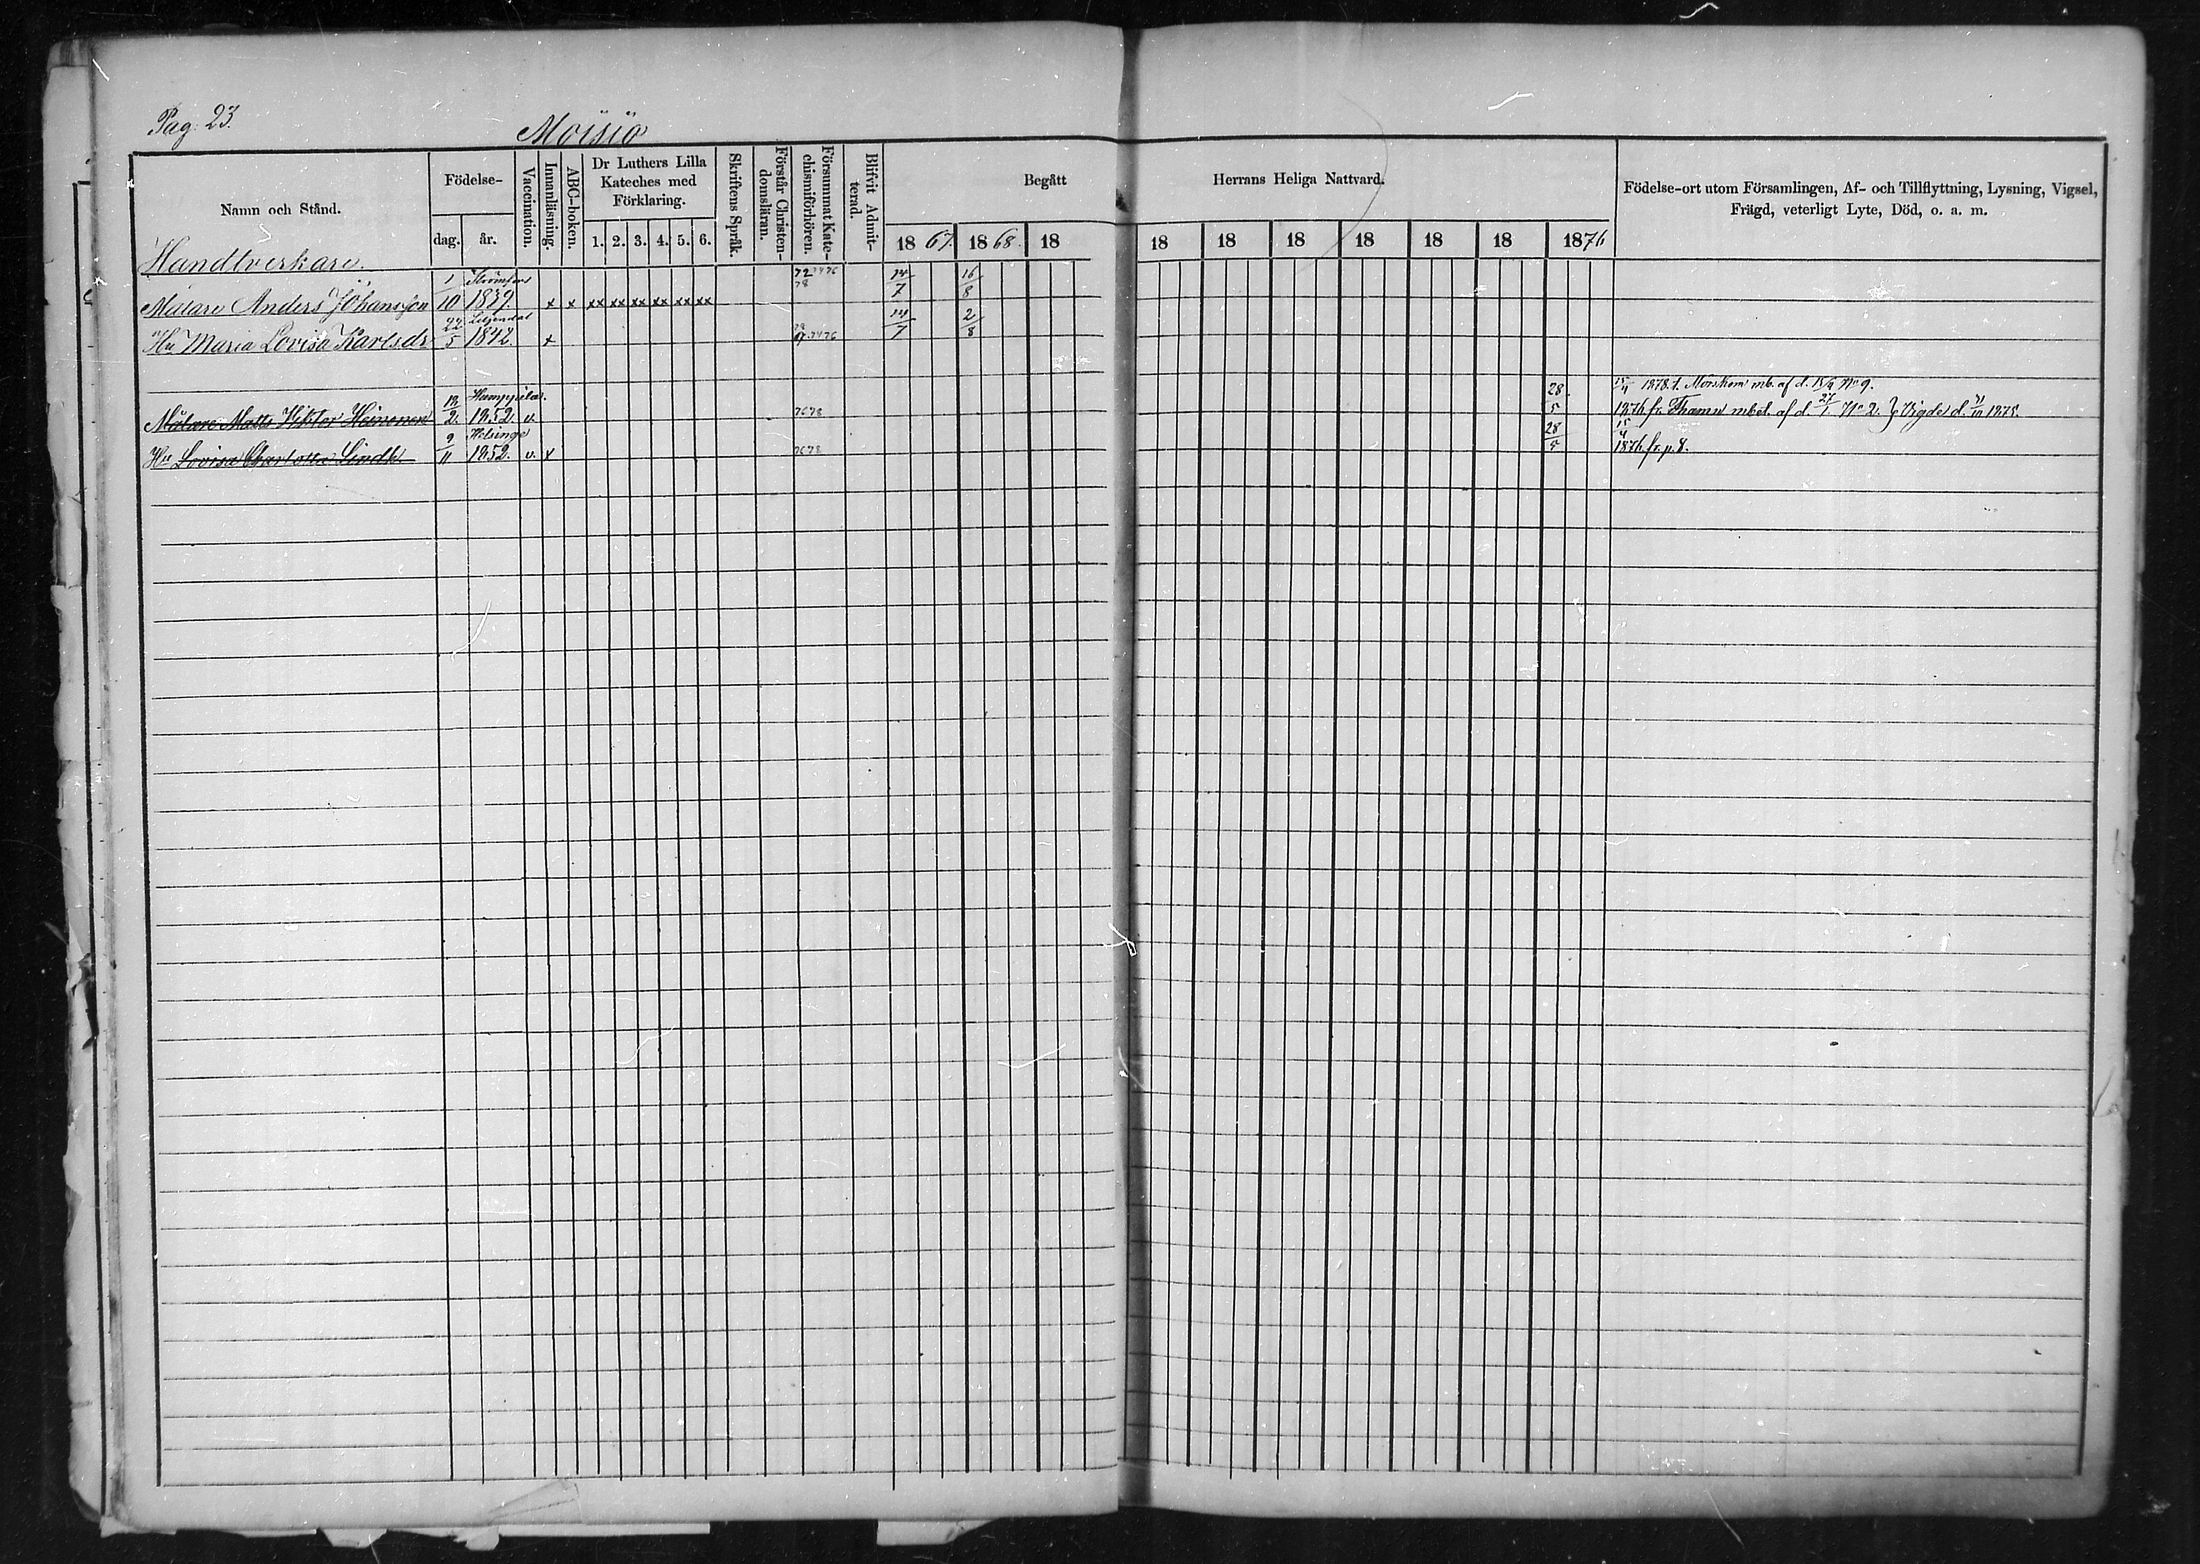 Pag. 23.
Moisio
Namn och Stånd.
Födelse-
dag. år.
Vaccination.
Innanläsning.
ABC-boken.
Dr Luthers Lilla
Kateches med
Förklaring.
1. 2. 3. 4. 5. 6.
Skriftens Språk.
Förstår Christen-
domsläran.
Försummat Kate-
chismiförhören.
Blifvit Admit-
terad.
Begått Herrans Heliga Nattvard.
1867. 1868. 18 18 18 18 18 18 18 1876
Födelse-ort utom Församlingen, Af- och Tillflyttning, Lysning, Vigsel,
Frägd, veterligt Lyte, Död, o. a. m.
Handtverkare.
1 Strömfors 72 74 76 14 16
Målare Anders Johansson 10 1839. x x xx xx xx xx xx xx 78 7 8
22 Liljendal 14 2
Hu Maria Lovisa Karlsdr 5 1842. x 74 76 7 8
13 28 15/4 1878 t. Mörskom mb. af d. 15/4 No 9.
Målare Matts Viktor Heinonen 2. 1852. v. 76 78 5 1876 fr. Thamn mbet. af d 27/1 No 2. } Vigde d. 31/10 1875.
9 Helsinge 28 15/4
Hu Lovisa Charlotta Lindh 11 1852. v. x 76 78 5 1876 fr. p. 8.